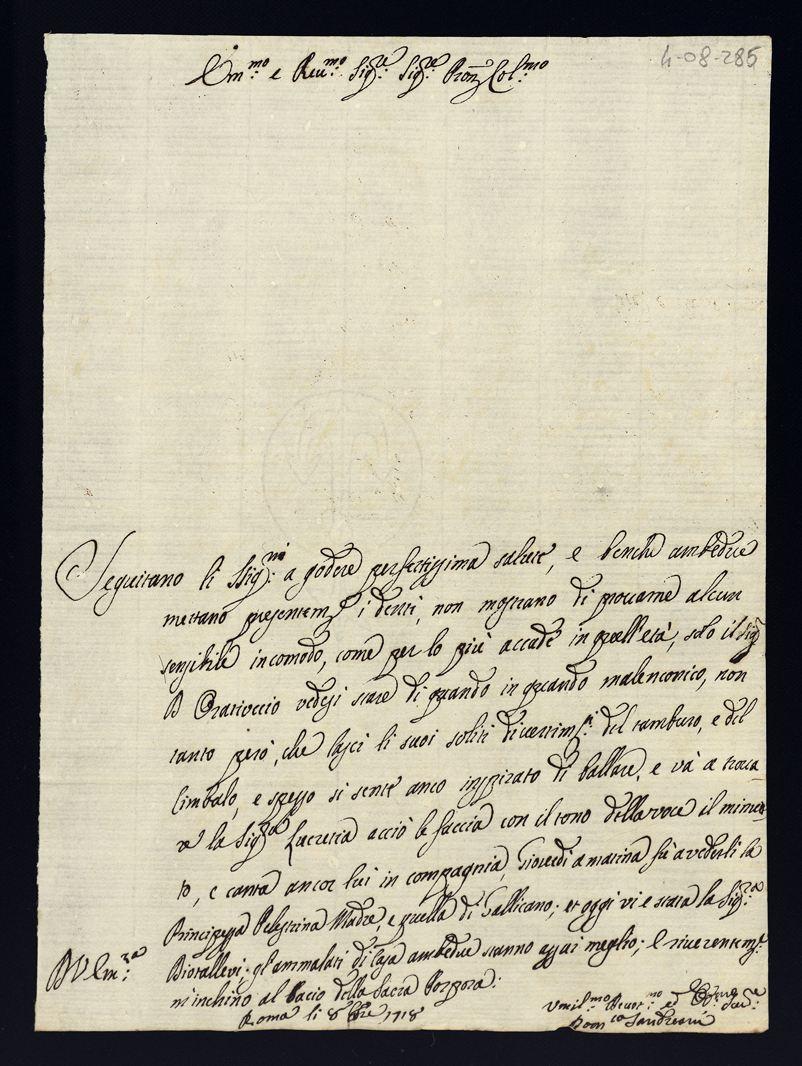 4-08-285
Em.mo e Reu.mo Sig.re Sig.re Pron Col.mo
Seguitano li Sig.ni a godere perfettissima salute, e benche ambedue
mettano presentem.e i denti, non mostrano di provarne alcun
sensibile incomodo, come per lo più accade in quell'età, solo il Sig.
D Oratiuccio vedesi stare di quando in quando malenconico, non
tanto però, che lasci li suoi soliti divertim.ti del tamburo, e del
Cimbalo, e spesso si sente anco inspirato di ballare, e và a trova
re la Sig.ra Lucretia acciò le faccia con il tono della voce il minue
to, e canta ancor lui in compagnia, Giovedi a matina fù a vederli la
Principessa Pelestrina Madre, e quella di Gallicano; et oggi vi e stata la Sig.ra
Diotallevi; gl'ammalati di Casa ambedue stanno assai meglio; e riverentem.e
m'inchino al bacio della Sacra Porpora:
D V Em.za
Roma li 8 bre 1718
Vmil.mo Deuot.mo ed Serv.e
Dom.co